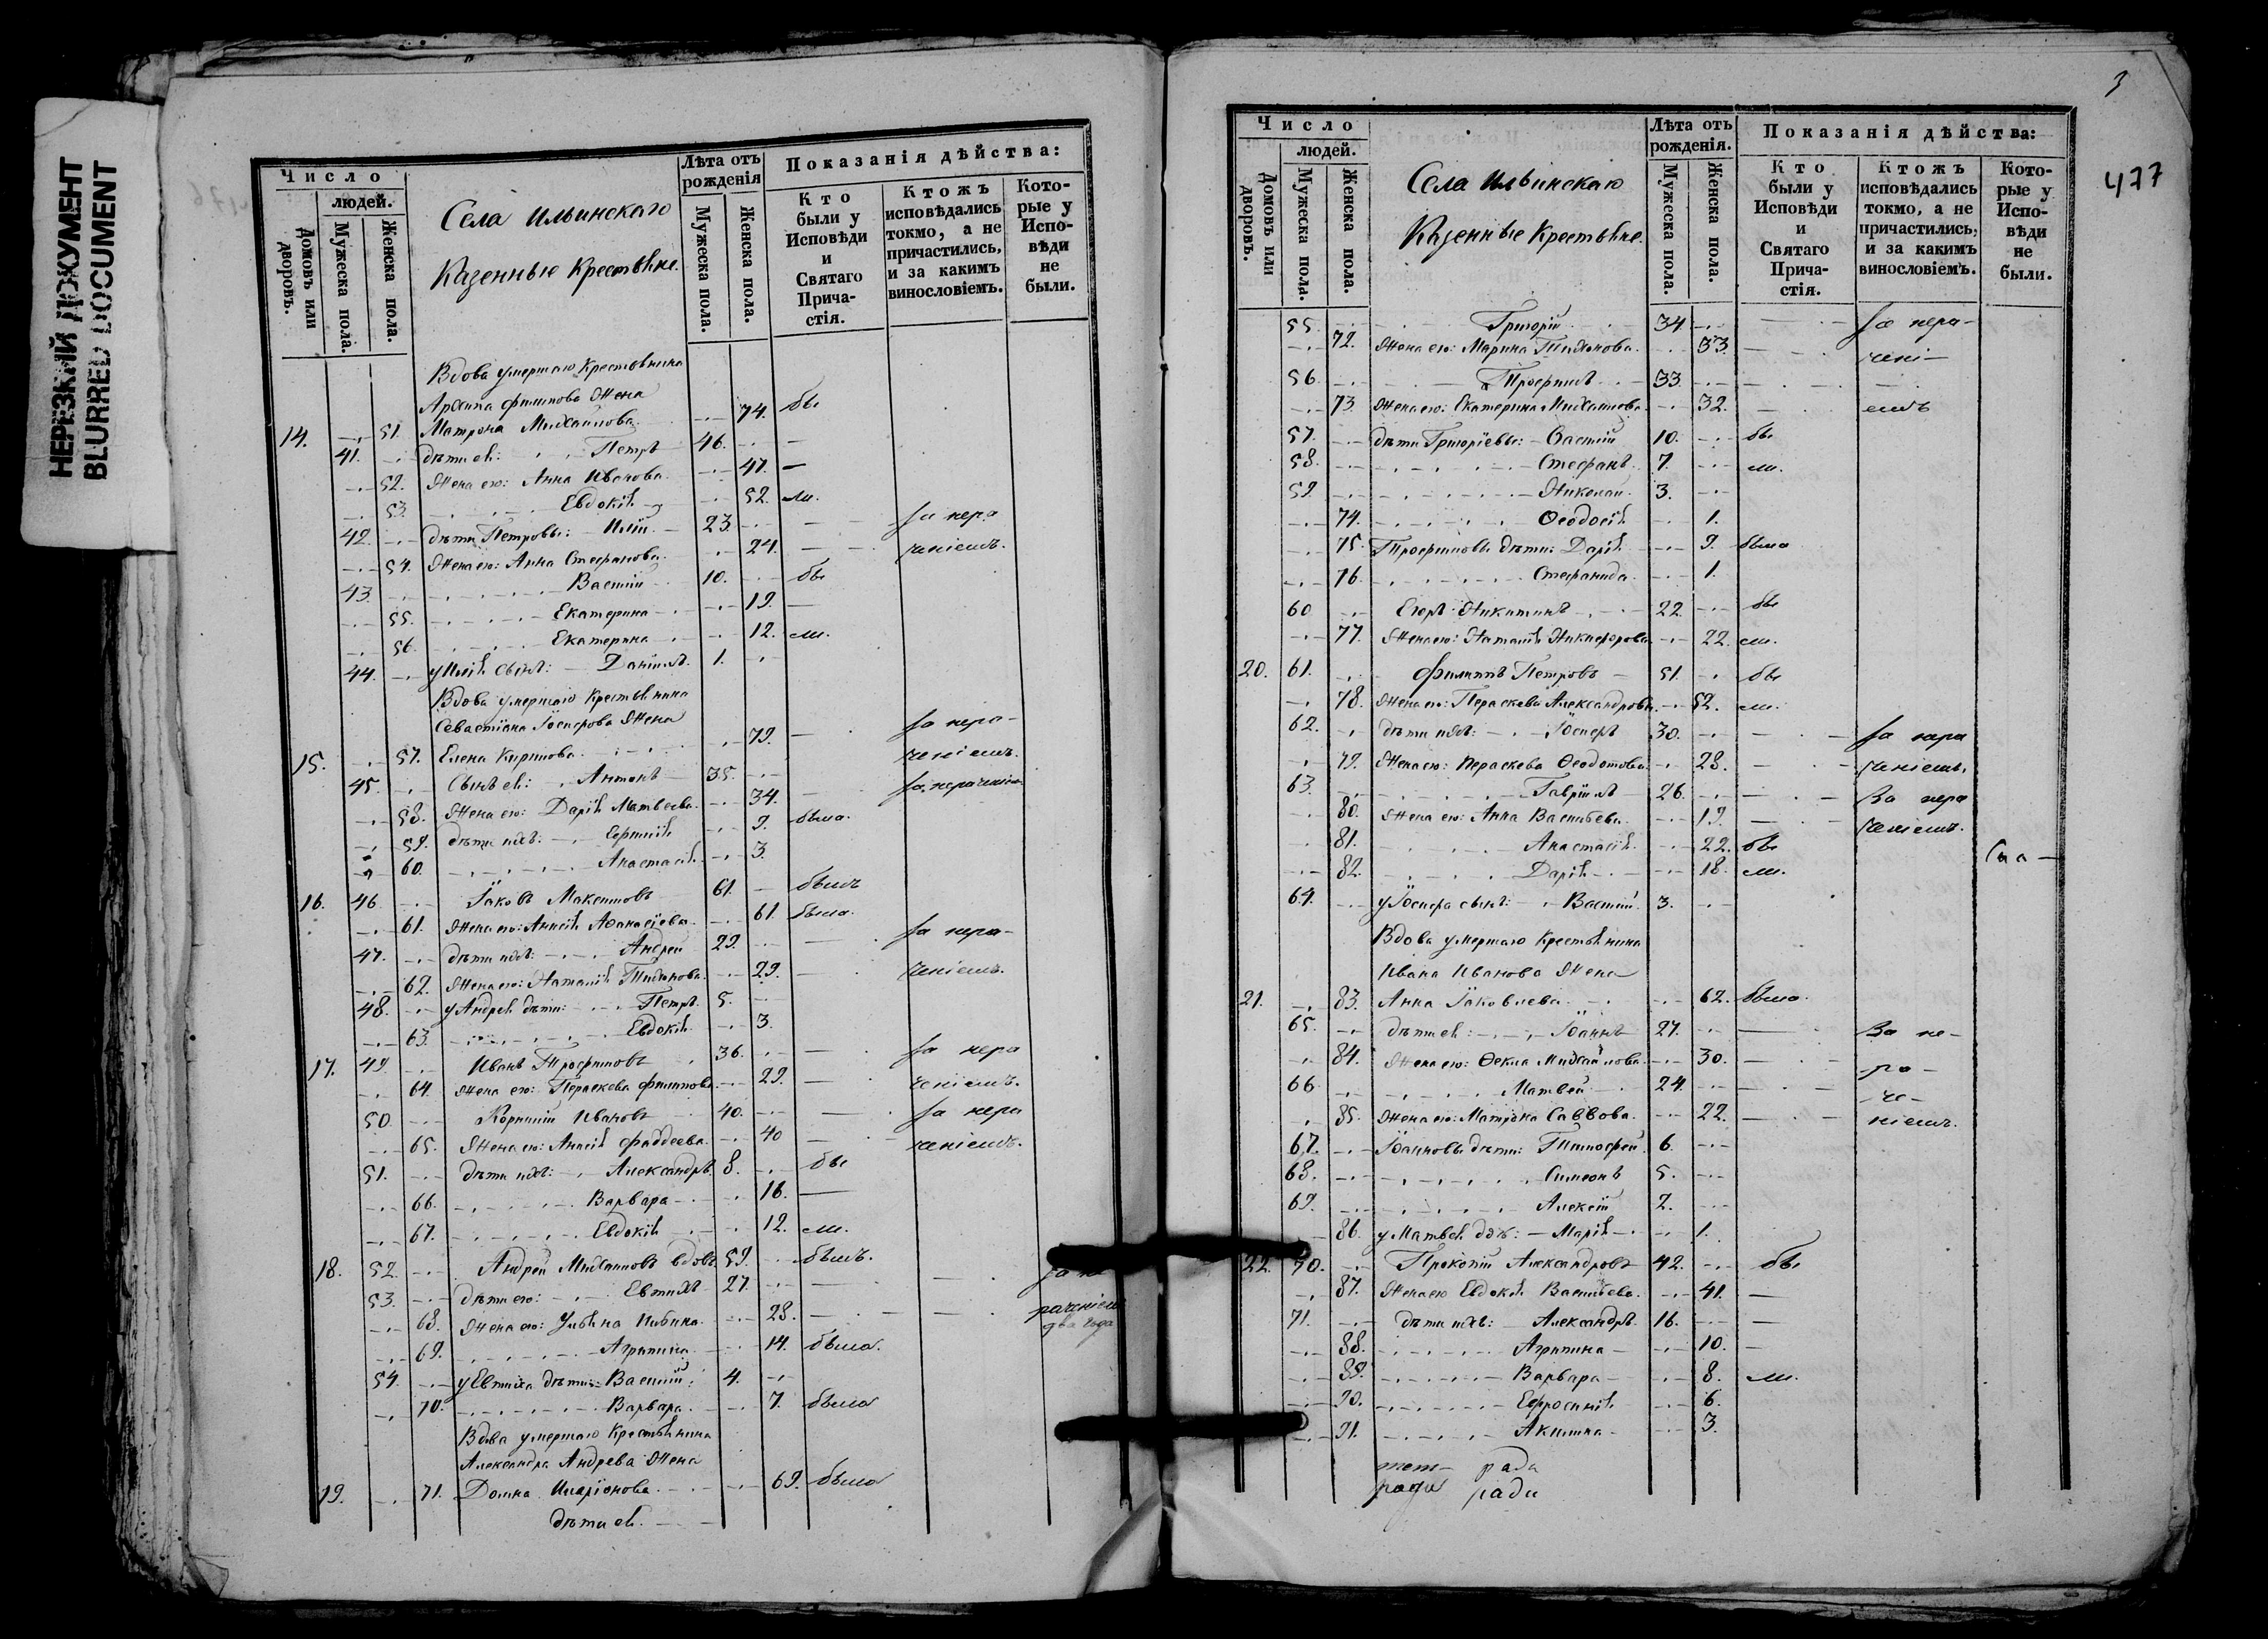 НЕРЕЗКИЙ ДОКУМЕНТ
BLURRED DOCUMENT
Число
людей.
Домовъ или дворовъ.
Мужеска пола.
Женска пола.
Села Ильинскаго
Казенные Крестьяне.
Лѣта отъ рожденія
Мужеска пола.
Женска пола.
Показанія дѣйства:
Кто были у Исповѣди и Святаго Причастія.
Ктожъ исповѣдались токмо, а не причастились, и за какимъ винословіемъ.
Которые у Исповѣди не были.
Вдова умершаго Крестьянина
Архипа Филипова Жена
14. 51. Матрона Михайлова 74. бы
41. дѣти ея: Петръ 46. —
52. Жена его: Анна Иванова 47. —
53. Евдокія 52. ли.
42. дѣти Петровы: Илія 23. за нера
54. Жена его: Анна Стефанова 24. ченіемъ.
43. Василій 10. бы
55. Екатерина 19. —
56. Екатерина 12. ли.
44. у Иліи сынъ: Даніилъ 1.
Вдова умершаго Крестьянина
Севастіана Іосифова Жена
15. 57. Елена Кирилова 79. за нера-
ченіемъ.
45. Сынъ ея: Антонъ 35. за нераченіем
58. Жена его: Дарія Матвеева 34.
59. дѣти ихъ: Ефимія 9. была.
60. Анастасія 3.
16. 46. Іаковъ Максимовъ 61. былъ
61. Жена его: Анисія Афанасіева 61. была.
47. дѣти ихъ: Андрей 29. за нера-
62. Жена его: Наталія Тихонова 29. ченіемъ.
48. у Андрея дѣти: Петръ 5.
63. Евдокія 3.
17. 49. Иванъ Трофимовъ 36. за нера
64. Жена его: Параскева Филипова 29. ченіемъ.
50. Корнилій Ивановъ 40. за нера
65. Жена его: Анисія Фаддеева 40 ченіемъ.
51. дѣти ихъ: Александръ 8. бы
66. Варвара 16. —
67. Евдокія 12. ли.
18. 52. Андрей Михаиловъ вдовъ 59. былъ.
53. дѣти его: Евтихъ 27. за не
68. Жена его: Ульяна 28. раченіем
два года
69. Агрипина 14. была.
54. у Евтиха дѣти: Василій 4.
70. Варвара 7. была
Вдова умершаго Крестьянина
Александра Андрева Жена
19. 71. Домна Иларіонова 69. была
дѣти ея.
3
477
Число
людей.
Домовъ или дворовъ.
Мужеска пола.
Женска пола.
Села Ильинскаго
Казенные Крестьяне.
Лѣта отъ рожденія.
Мужеска пола.
Женска пола.
Показанія дѣйства:
Кто были у Исповѣди и Святаго Причастія.
Ктожъ исповѣдались токмо, а не причастились, и за какимъ винословіемъ.
Которые у Исповѣди не были.
55. Григорій 34. за нера-
72. Жена его: Марина Тихонова 33. чені-
56. Трофимъ 33.
73. Жена его: Екатерина Михаилова 32. емъ
57. дѣти Григоріевы: Василій 10. бы
58. Стефанъ 7. ли.
59. Николай 3.
74. Феодосія 1.
75. Трофимовы дѣти: Дарія 9. была
76. Стефанида 1.
60 Егоръ Никитинъ 22 бы
77. Жена его: Наталія Никифорова 22. ли.
20. 61. Филиппъ Петровъ 51. бы
78. Жена его: Параскева Александрова 52. ли.
62. дѣти ихъ: Іосифъ 30. за нера
79. Жена его: Параскева Феодотова 28. ченіемъ.
63. Гавріилъ 26. За нера
80. Жена его: Анна Васильева 19. ченіемъ.
81. Анастасія 22. бы
82. Дарія 18. ли.
64. у Іосифа сынъ: Василій 3.
Вдова умершаго Крестьянина
Ивана Иванова Жена
21. 83. Анна Іаковлева 62. была.
65. дѣти ея: Іоаннъ 27. За не-
84. Жена его: Фекла Михайлова 30. ра-
66 Матвей 24. че-
85. Жена его: Матрона Саввова 22. ніемъ.
67. Іоанновы дѣти: Тимофей 6.
68. Симеонъ 5.
69. Алексій 2.
86. у Матвея дочь: Марія 1.
22. 70. Прокопій Александровъ 42. бы
87. Жена его Евдокія Васильева 41. —
71. дѣти ихъ: Александръ 16. —
88. Агрипина 10. —
89. Варвара 8. ли.
90. Ефросинія 6.
91. Акилина 3.